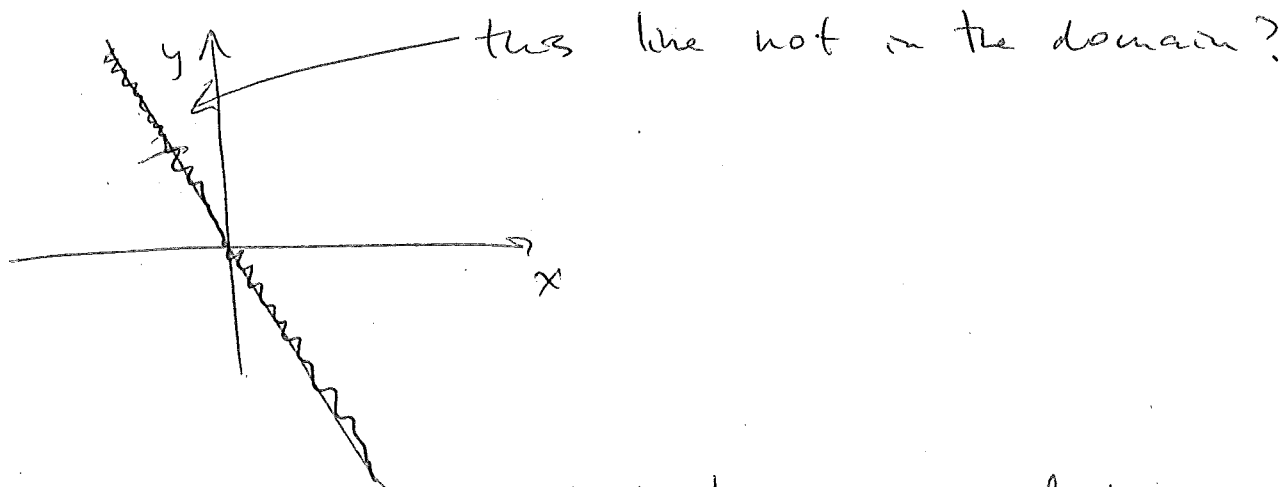 this line not in the domain?
y
x